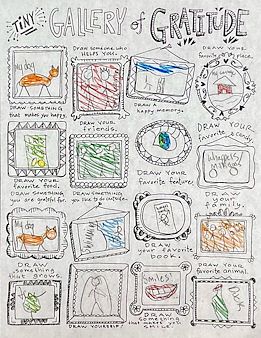 TINY GALLERY of GRATITUDE
DRAW SOMETHING
that makes you happy.
DRAW SOMEONE WHO
HELPS YOU.
DRAW A
happy memory.
DRAW YOUR
favorite place.
my dog
DRAW YOUR
favorite food.
DRAW YOUR
friends.
DRAW YOUR
favorite feature!
DRAW YOUR
favorite candy.
DRAW SOMETHING
you are grateful for.
DRAW SOMETHING
you like to do outside.
DRAW
YOUR
favorite
book.
DRAW
your
family.
my dog
DRAW
something
that grows.
DRAW YOURSELF!
smiles
DRAW
something
that makes you
SMILE.
DRAW
YOUR
favorite animal.